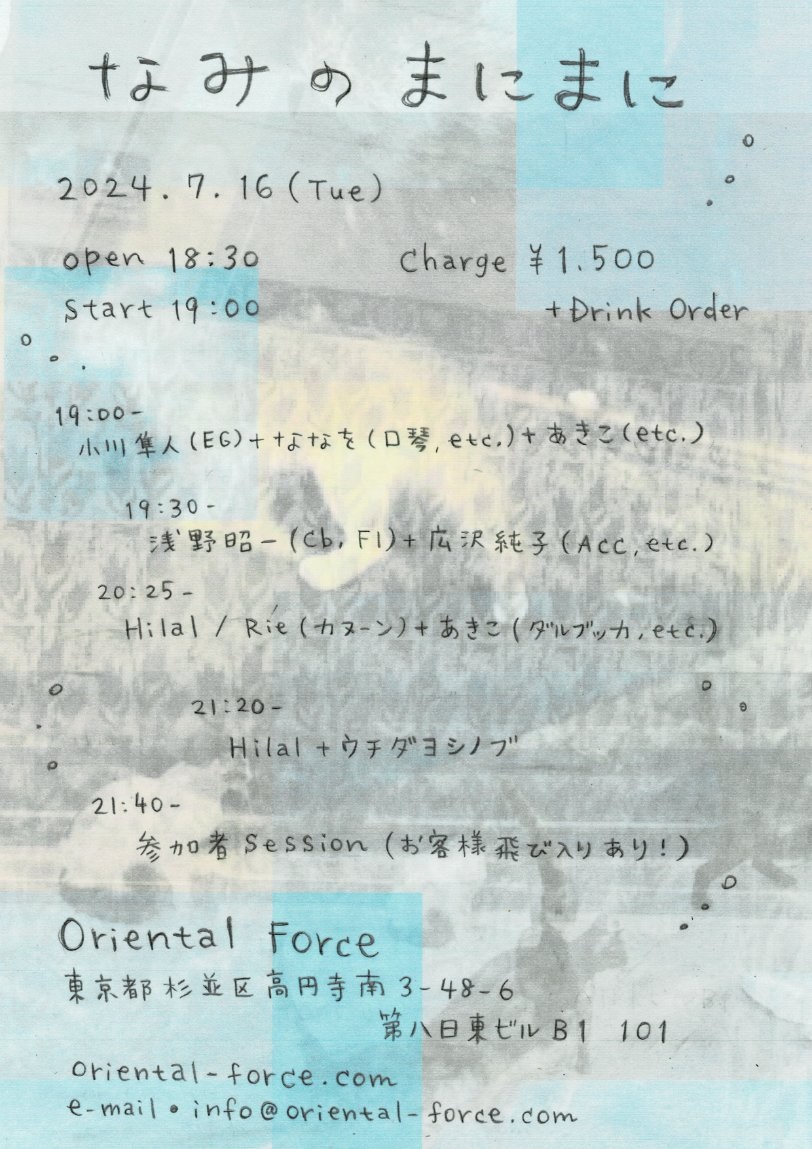 なみのまにまに
2024.7.16(Tue)
open 18:30
Charge ¥1.500
Start 19:00
+Drink Order
19:00-
小川隼人(EG)+ななを(口琴,etc.)+あきこ(etc.)
19:30-
浅野昭一(Cb,Fl)+広沢純子(Acc,etc.)
20:25-
Hilal / Rie(カヌーン)+あきこ(ダルブッカ,etc.)
21:20-
Hilal+ウチダヨシノブ
21:40-
参加者Session(お客様飛び入りあり!)
Oriental Force
東京都杉並区高円寺南3-48-6
第八日東ビルB1 101
oriental-force.com
e-mail・info@oriental-force.com